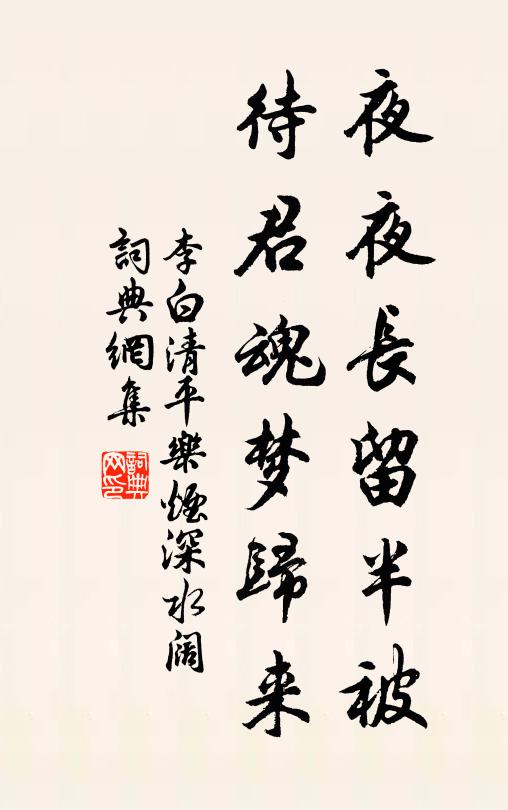 夜夜長留半被
待君魂梦歸来
李白清平樂煙深水阔
詞典網集
詞典網印